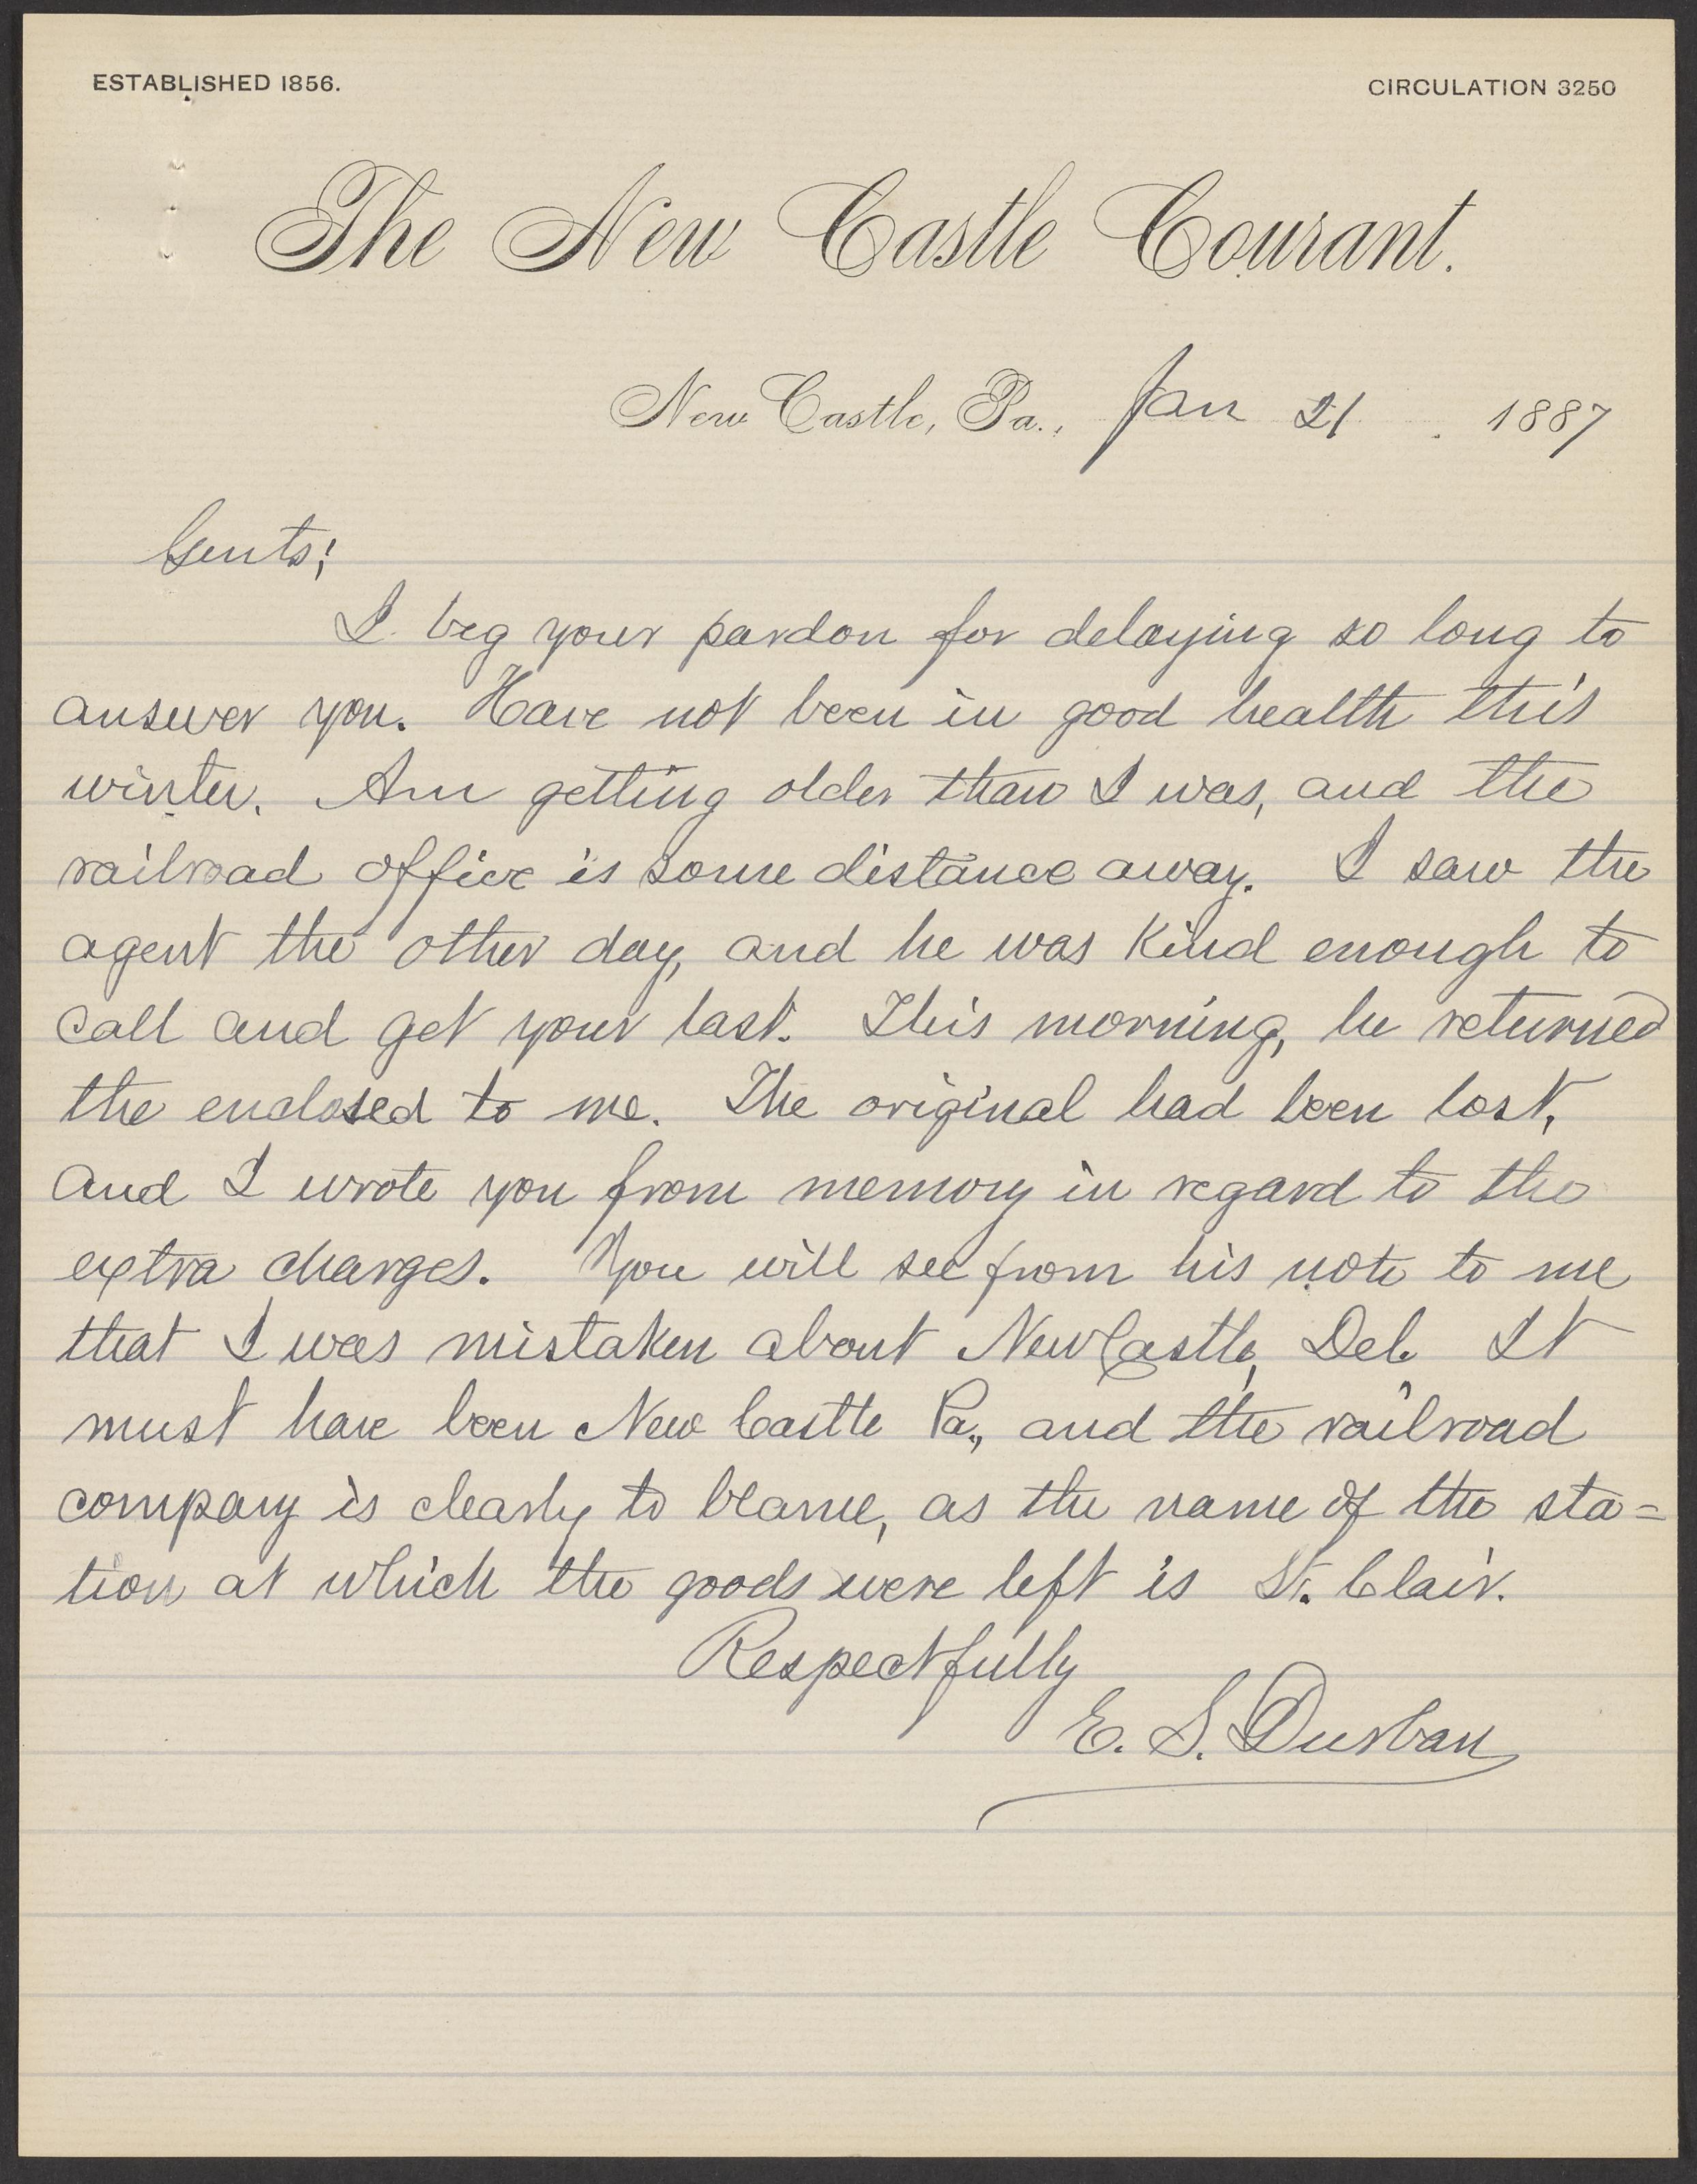 ESTABLISHED 1856.
CIRCULATION 3250
The New Castle Courant.
New Castle, Pa., Jan 21. 1887
Gents;
I beg your pardon for delaying so long to
answer you. Have not been in good health this
winter. Am getting older than I was, and the
railroad office is some distance away. I saw the
agent the other day, and he was kind enough to
call and get your last. This morning, he returned
the enclosed to me. The original had been lost,
and I wrote you from memory in regard to the
extra charges. You will see from his note to me
that I was mistaken about New Castle, Del. It
must have been New Castle Pa., and the railroad
company is clearly to blame, as the name of the sta=
tion at which the goods were left is St. Clair.
Respectfully
E. S. Durban